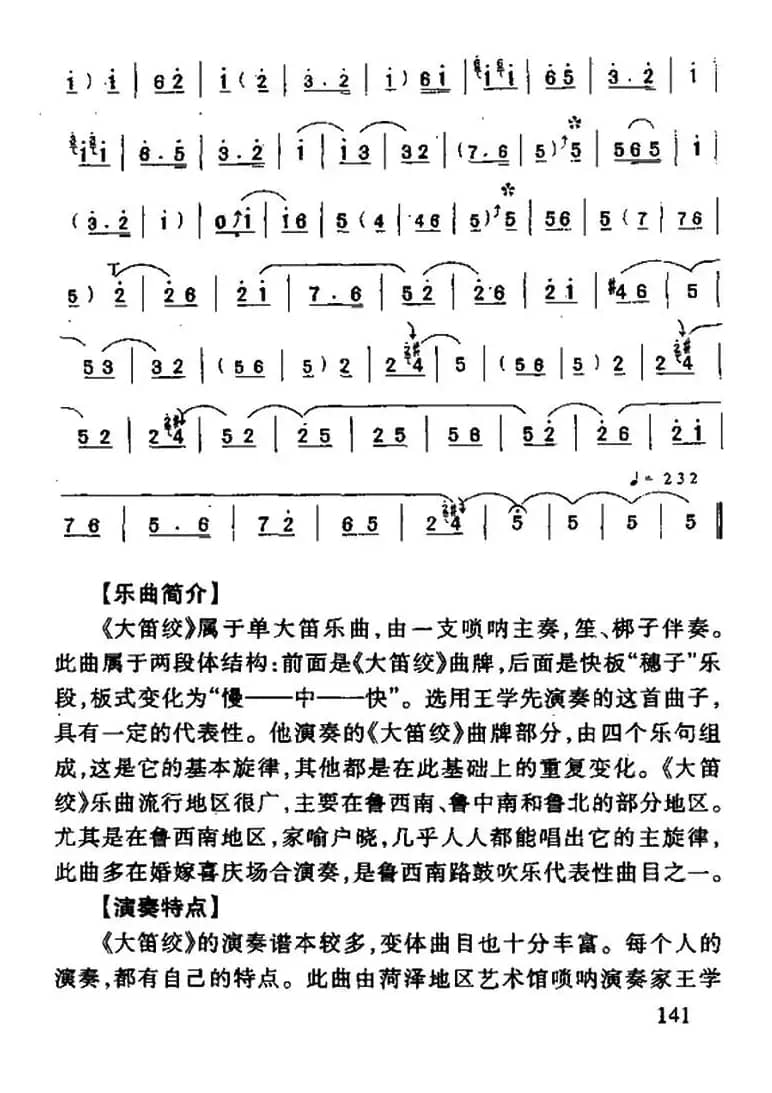 i ) i | 6 2 | i ( 2 | 3 . 2 | i ) 6 i | i i | 6 5 | 3 . 2 | i
i i | 6 . 5 | 3 . 2 | i | i 3 | 3 2 | ( 7 . 6 | 5 ) 5 | 5 6 5 | i
( 3 . 2 | i ) | 0 i | i 6 | 5 ( 4 | 4 6 | 5 ) 5 | 5 6 | 5 ( 7 | 7 6
5 ) 2 | 2 6 | 2 i | 7 . 6 | 5 2 | 2 6 | 2 i | #4 6 | 5
5 3 | 3 2 | ( 5 6 | 5 ) 2 | 2 4 | 5 | ( 5 6 | 5 ) 2 | 2 4
5 2 | 2 4 | 5 2 | 2 5 | 2 5 | 5 6 | 5 2 | 2 6 | 2 i
♩= 232
7 6 | 5 . 6 | 7 2 | 6 5 | 2 4 | 5 | 5 | 5 | 5 ‖
【乐曲简介】
《大笛绞》属于单大笛乐曲,由一支唢呐主奏,笙、梆子伴奏。
此曲属于两段体结构:前面是《大笛绞》曲牌,后面是快板“穗子”乐
段,板式变化为“慢——中——快”。选用王学先演奏的这首曲子,
具有一定的代表性。他演奏的《大笛绞》曲牌部分,由四个乐句组
成,这是它的基本旋律,其他都是在此基础上的重复变化。《大笛
绞》乐曲流行地区很广,主要在鲁西南、鲁中南和鲁北的部分地区。
尤其是在鲁西南地区,家喻户晓,几乎人人都能唱出它的主旋律,
此曲多在婚嫁喜庆场合演奏,是鲁西南路鼓吹乐代表性曲目之一。
【演奏特点】
《大笛绞》的演奏谱本较多,变体曲目也十分丰富。每个人的
演奏,都有自己的特点。此曲由菏泽地区艺术馆唢呐演奏家王学
141